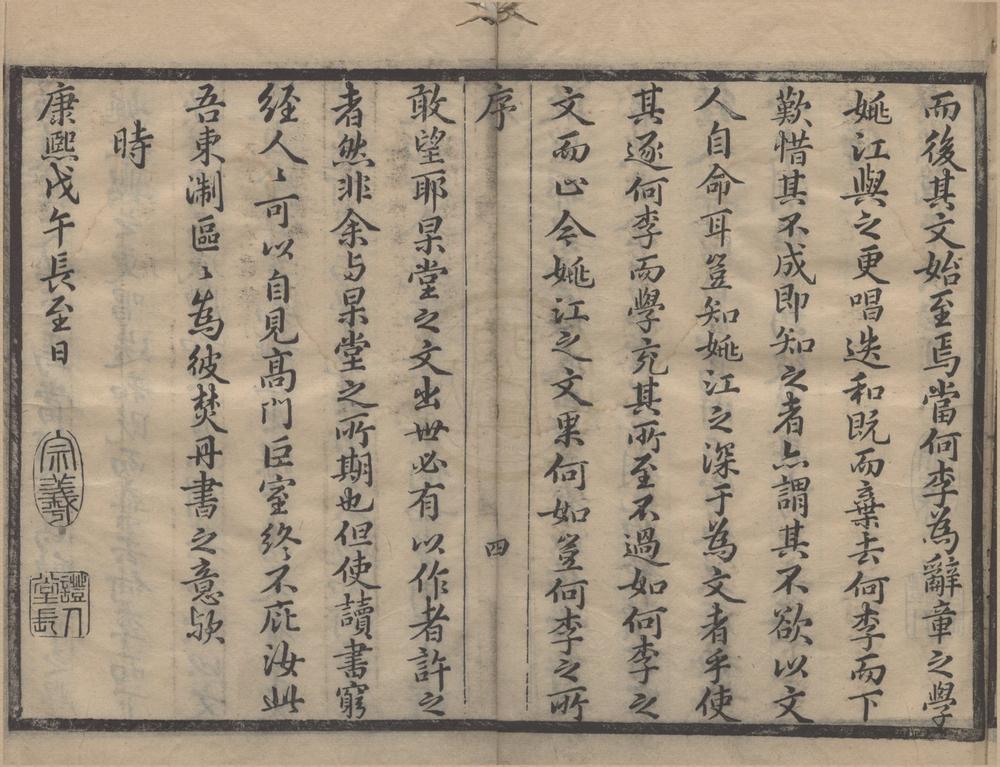 而後其文始至焉當何李為辭章之學
姚江與之更唱迭和既而棄去何李而下
歎惜其不成即知之者亦謂其不欲以文
人自命耳豈知姚江之深于為文者乎使
其逐何李而學充其所至不過如何李之
文而止今姚江之文果何如豈何李之所
序
四
敢望耶杲堂之文出世必有以作者許之
者然非余与杲堂之所期也但使讀書窮
經人〻可以自見高門巨室終不庇汝此
吾東淛區〻為彼焚丹書之意歟
時
康熙戊午長至日
宗羲